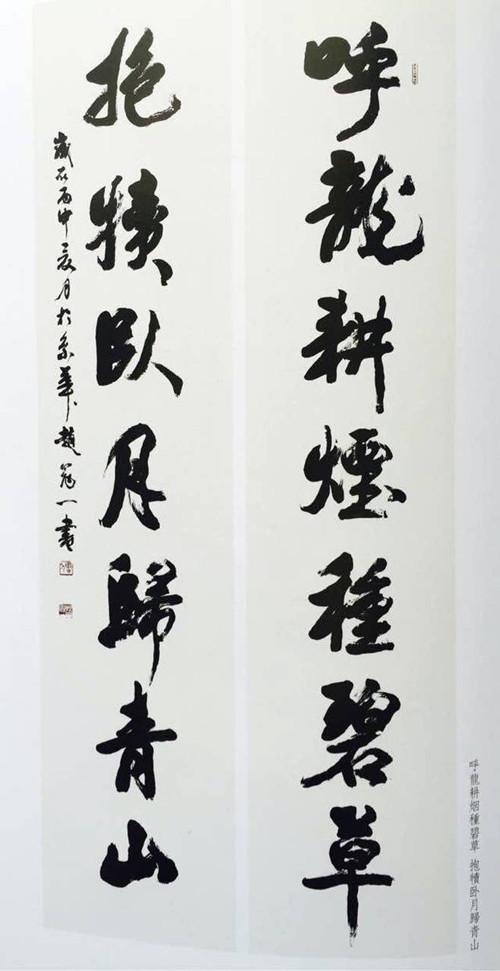 呼龍耕煙種碧草
抱犢臥月歸青山
歲在丙申夏月於京華趙冠一書
呼龍耕烟種碧草 抱犢卧月歸青山